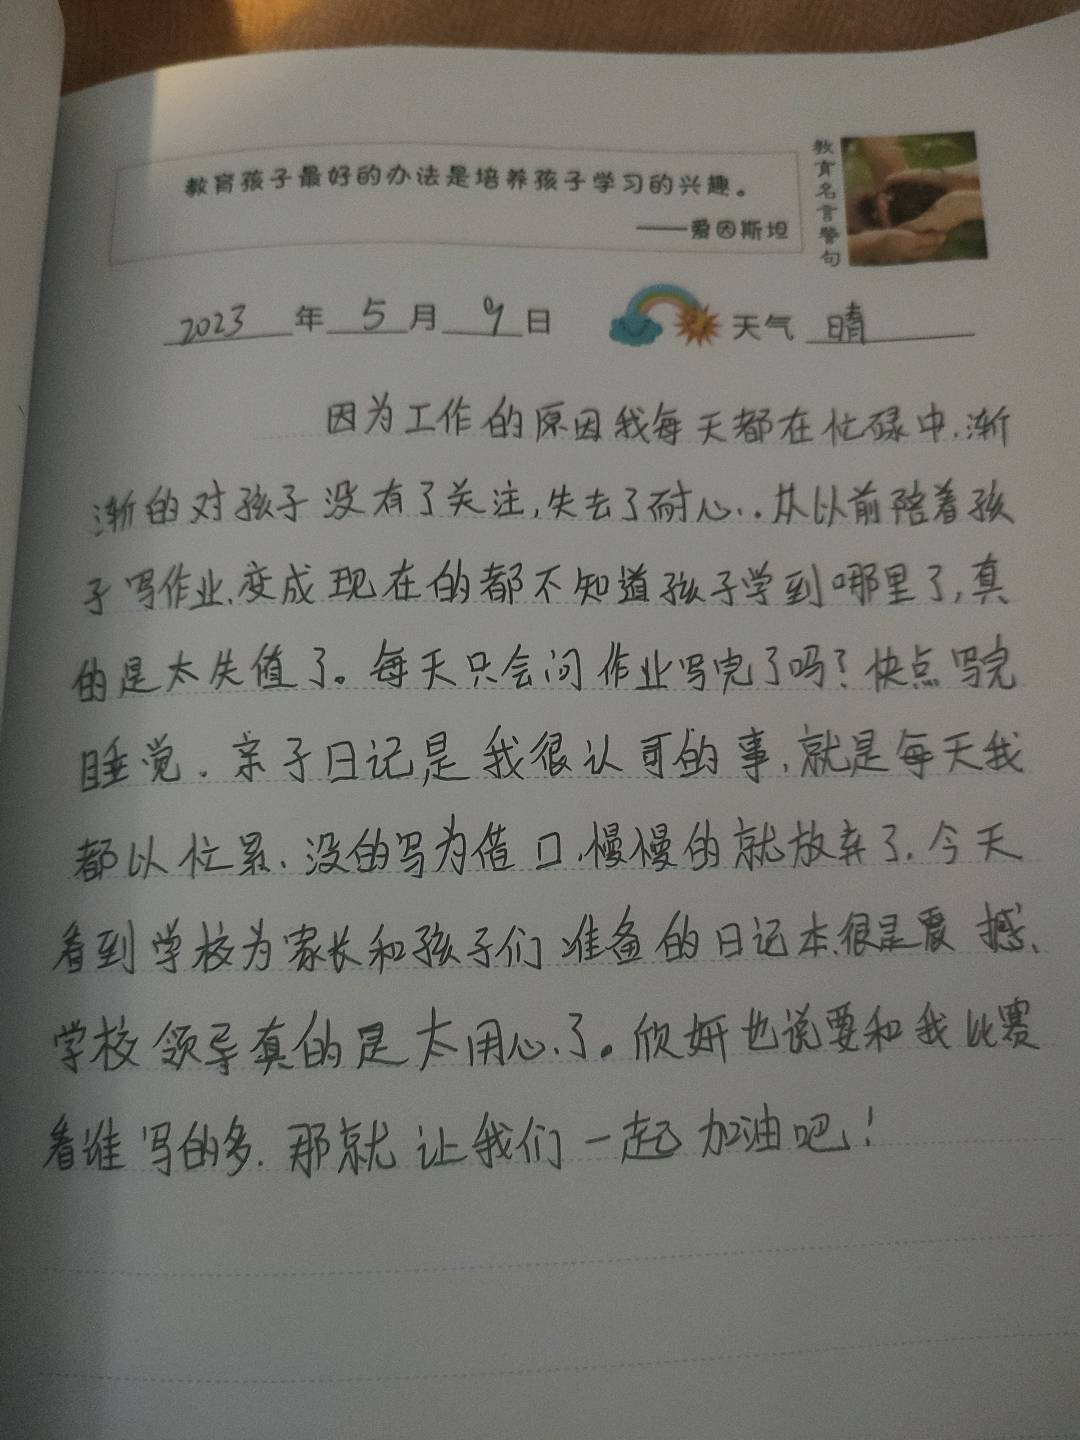 教育孩子最好的办法是培养孩子学习的兴趣。
——爱因斯坦
教育名言警句
2023年5月9日 天气 晴
因为工作的原因我每天都在忙碌中.渐
渐的对孩子没有了关注,失去了耐心..从以前陪着孩
子写作业,变成现在的都不知道孩子学到哪里了,真
的是太失值了。每天只会问作业写完了吗?快点写完
睡觉.亲子日记是我很认可的事,就是每天我
都以忙累.没的写为借口,慢慢的就放弃了.今天
看到学校为家长和孩子们准备的日记本,很是震撼,
学校领导真的是太用心了。欣妍也说要和我比赛
看谁写的多.那就让我们一起加油吧!